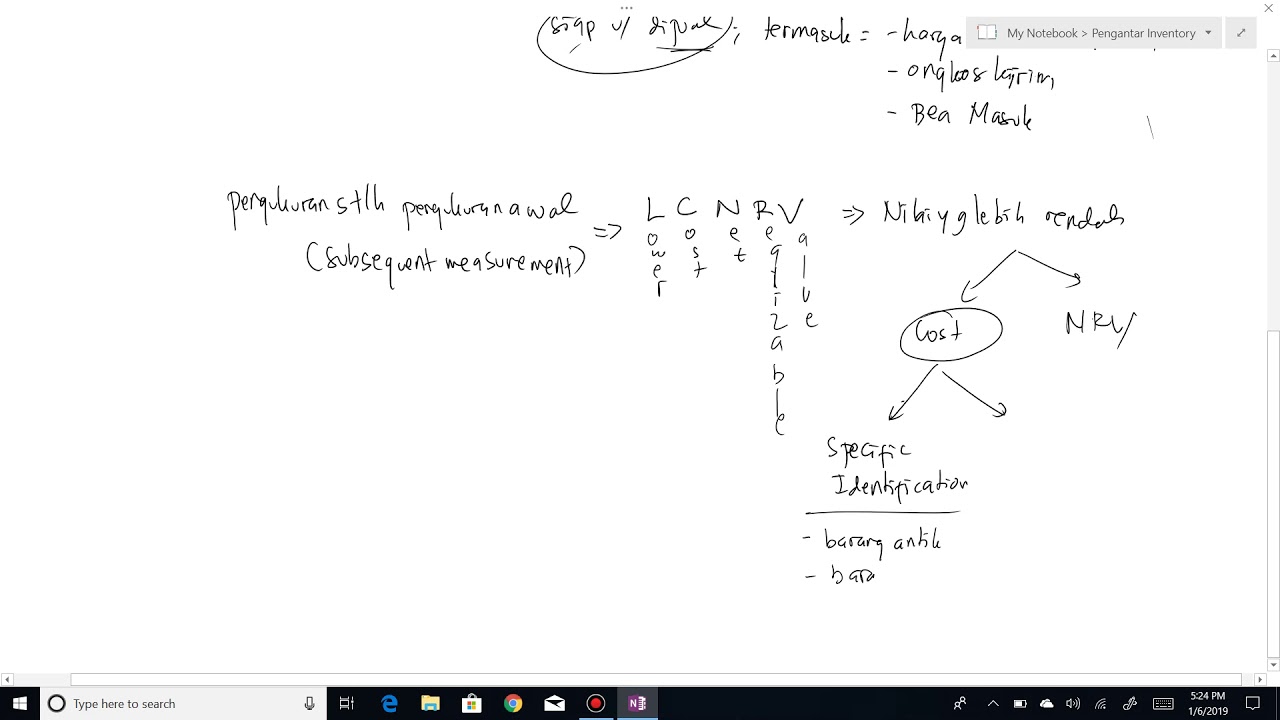 siap u/ dijual ; termasuk = - harga
My Notebook > Pengantar Inventory
- ongkos kirim,
- Bea Masuk
pengukuran stlh pengukuran awal
(subsequent measurement)
=> L C N R V => Nilai yg lebih rendah
ower
ost
et
ealizable
alue
Cost
NRV
Specific
Identification
- barang antik
- bara
Type here to search
5:24 PM
1/6/2019